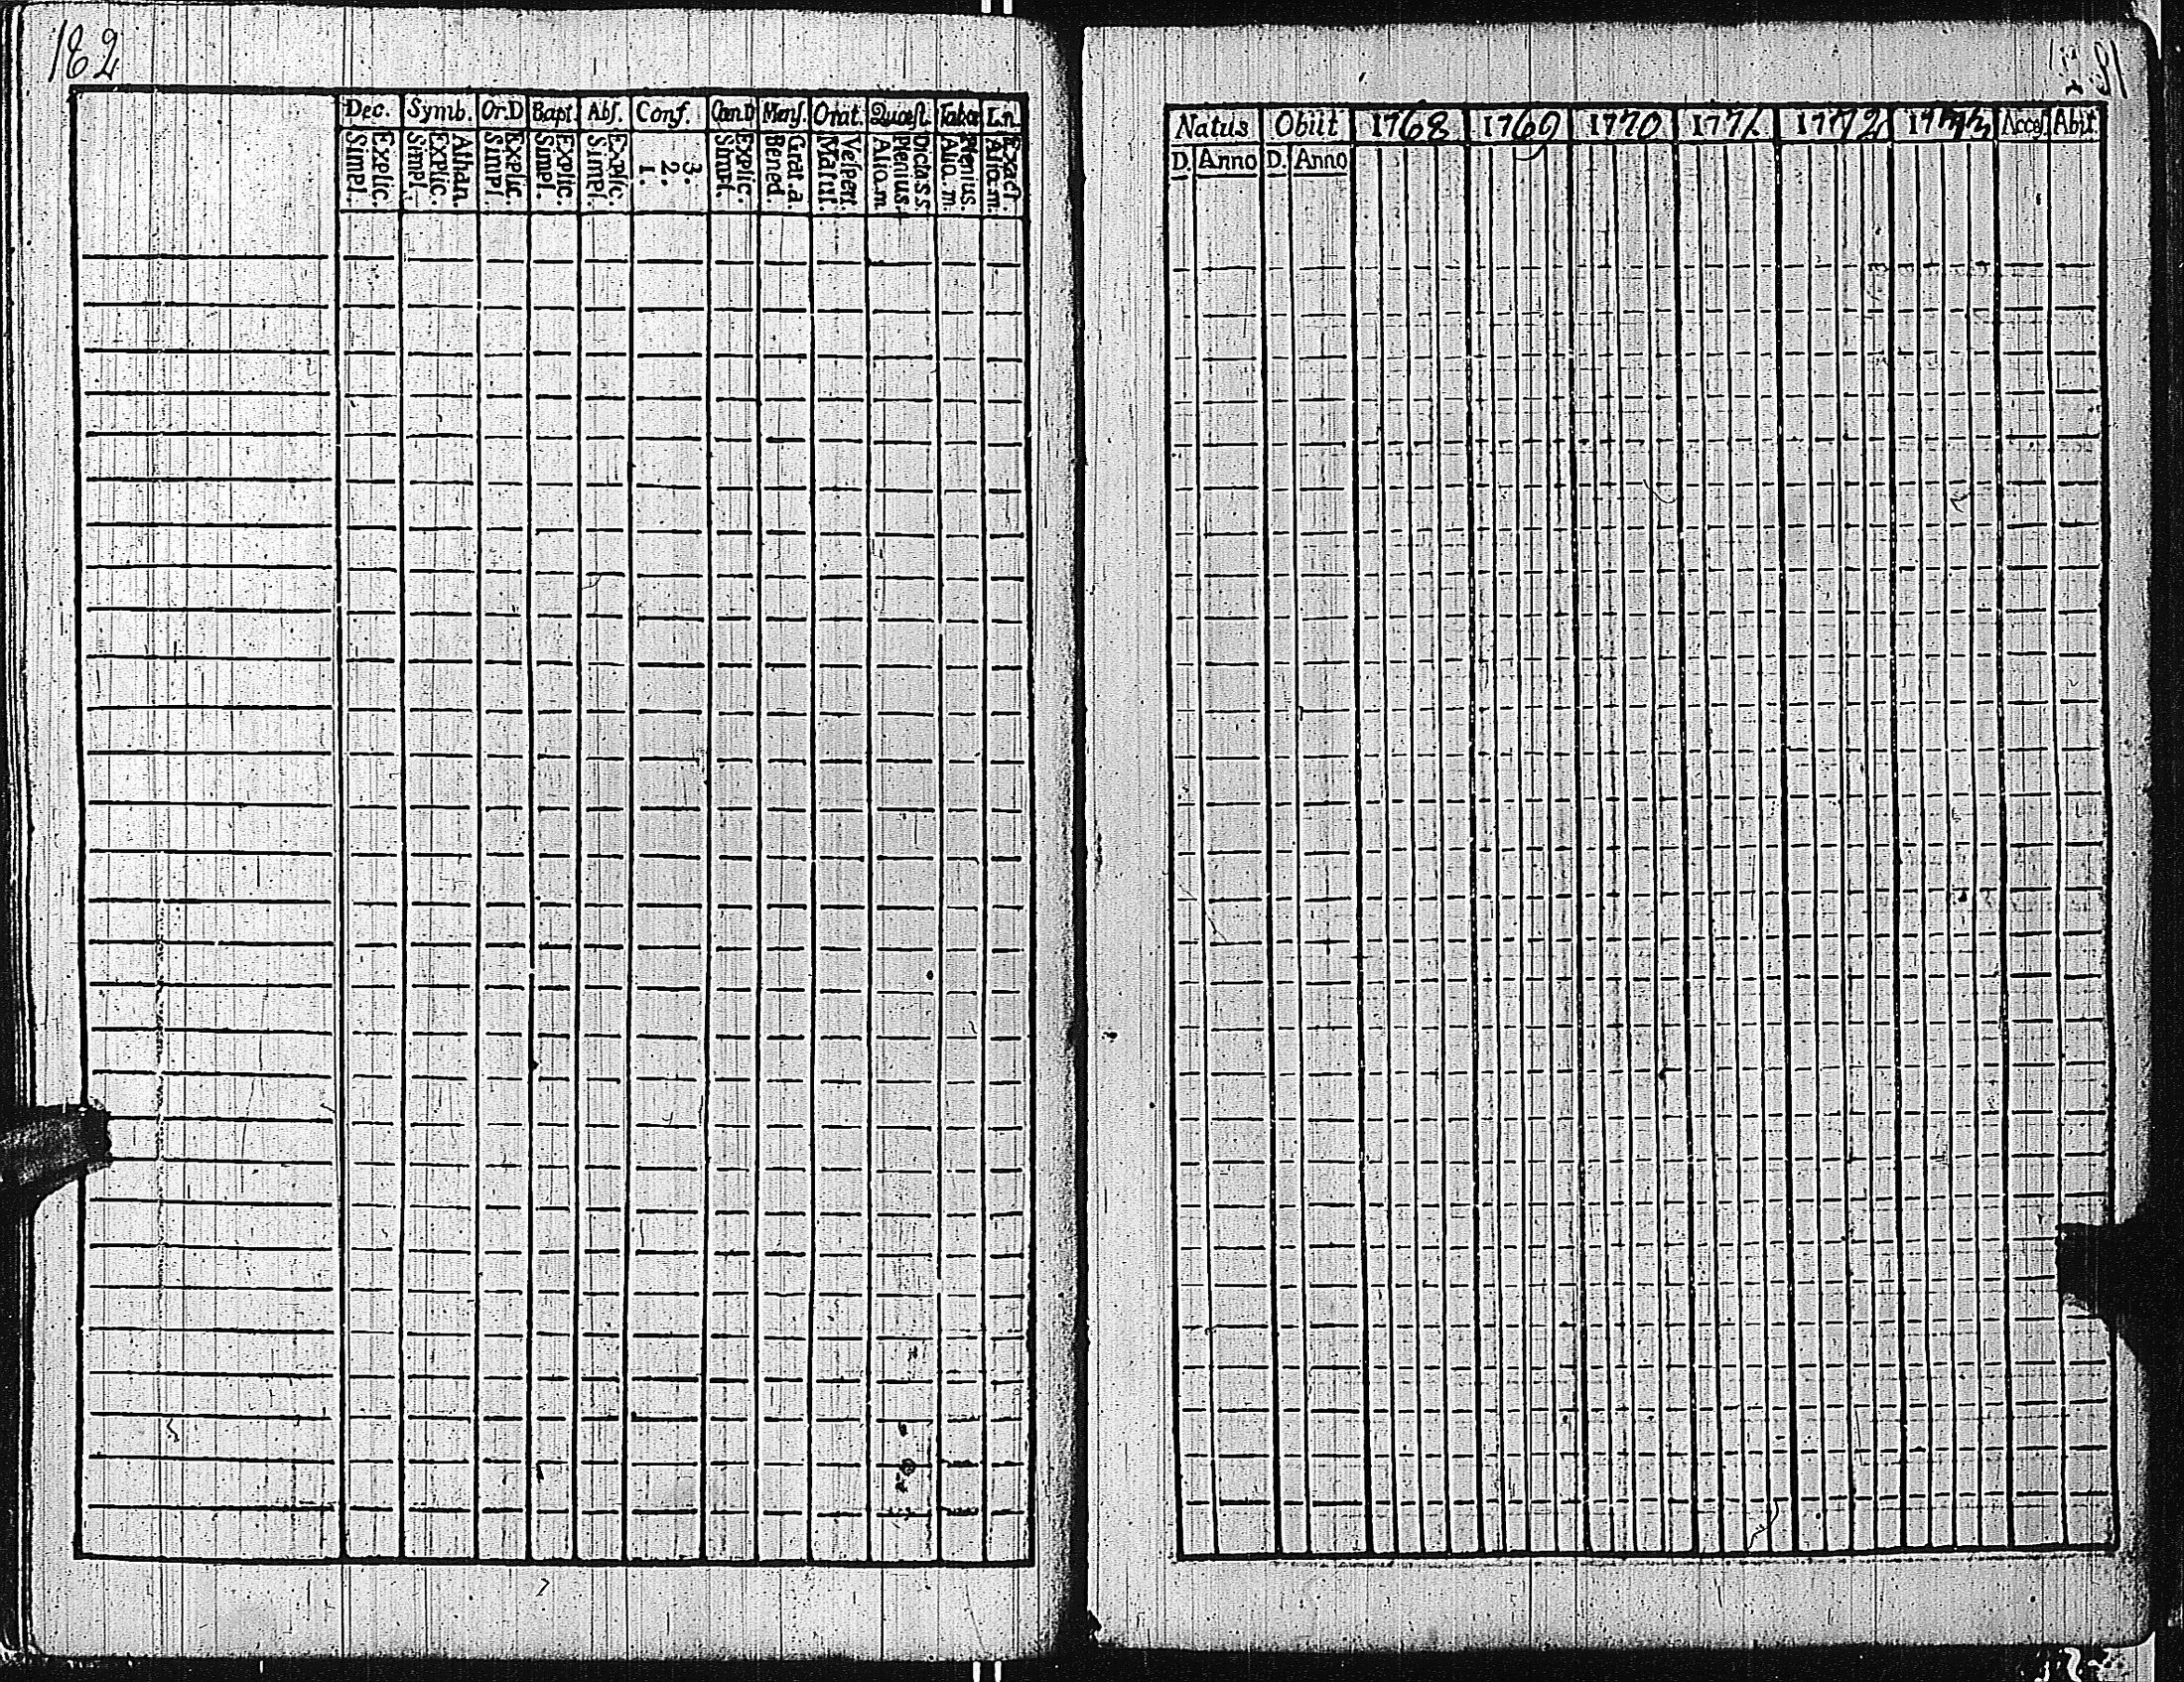 162
Dec. Symb. Or.D Bapt. Abs. Conf. Can.D Mens. Orat. Quæst. Tabæ L.n.
Explic. Simpl. Athan. Explic. Simpl. Explic. Simpl. Explic. Simpl. Explic. Simpl. 3. 2. 1. Explic. Simpl. Grat. a. Bened. Vespert. Matut. Dicta s.s. Plenius. Alio.m Plenius. Alio. m. Exact. Alio.m.
Natus Obiit 1768 1769 1770 1771 1772 1773 Acces. Abit.
D. Anno D. Anno